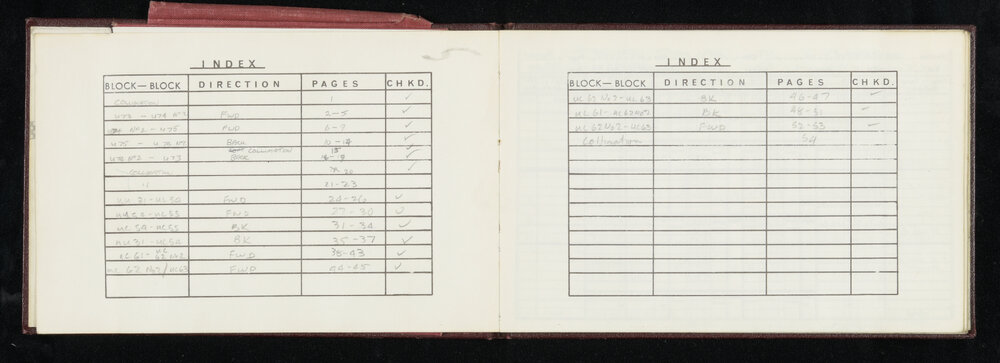 INDEX
BLOCK—BLOCK DIRECTION PAGES CHKD.
Collimation 1 ✓
473 - 474 Nº2 FWD 2-5 ✓
Nº2 - 475 FWD 6-7 ✓
475 - BACK 10-14 ✓
Collimation 15
- 473 BACK ✓
Collimation 20 ✓
" 21-23
FWD 24-26 ✓
- UC55 FWD 27-30 ✓
UC 54 - UC55 BK 31-34 ✓
- UC54 BK 35-37 ✓
UC 61 - UC 62 Nº2 FWD 38-43 ✓
UC 62 Nº2/UC63 FWD 44-45 ✓
INDEX
BLOCK—BLOCK DIRECTION PAGES CHKD.
UC 62 Nº2 - UC 63 BK 46-47 ✓
UC 61 - UC62Nº2 BK 48-51 ✓
UC 62Nº2 - UC63 FWD 52-53 ✓
Collimation 54